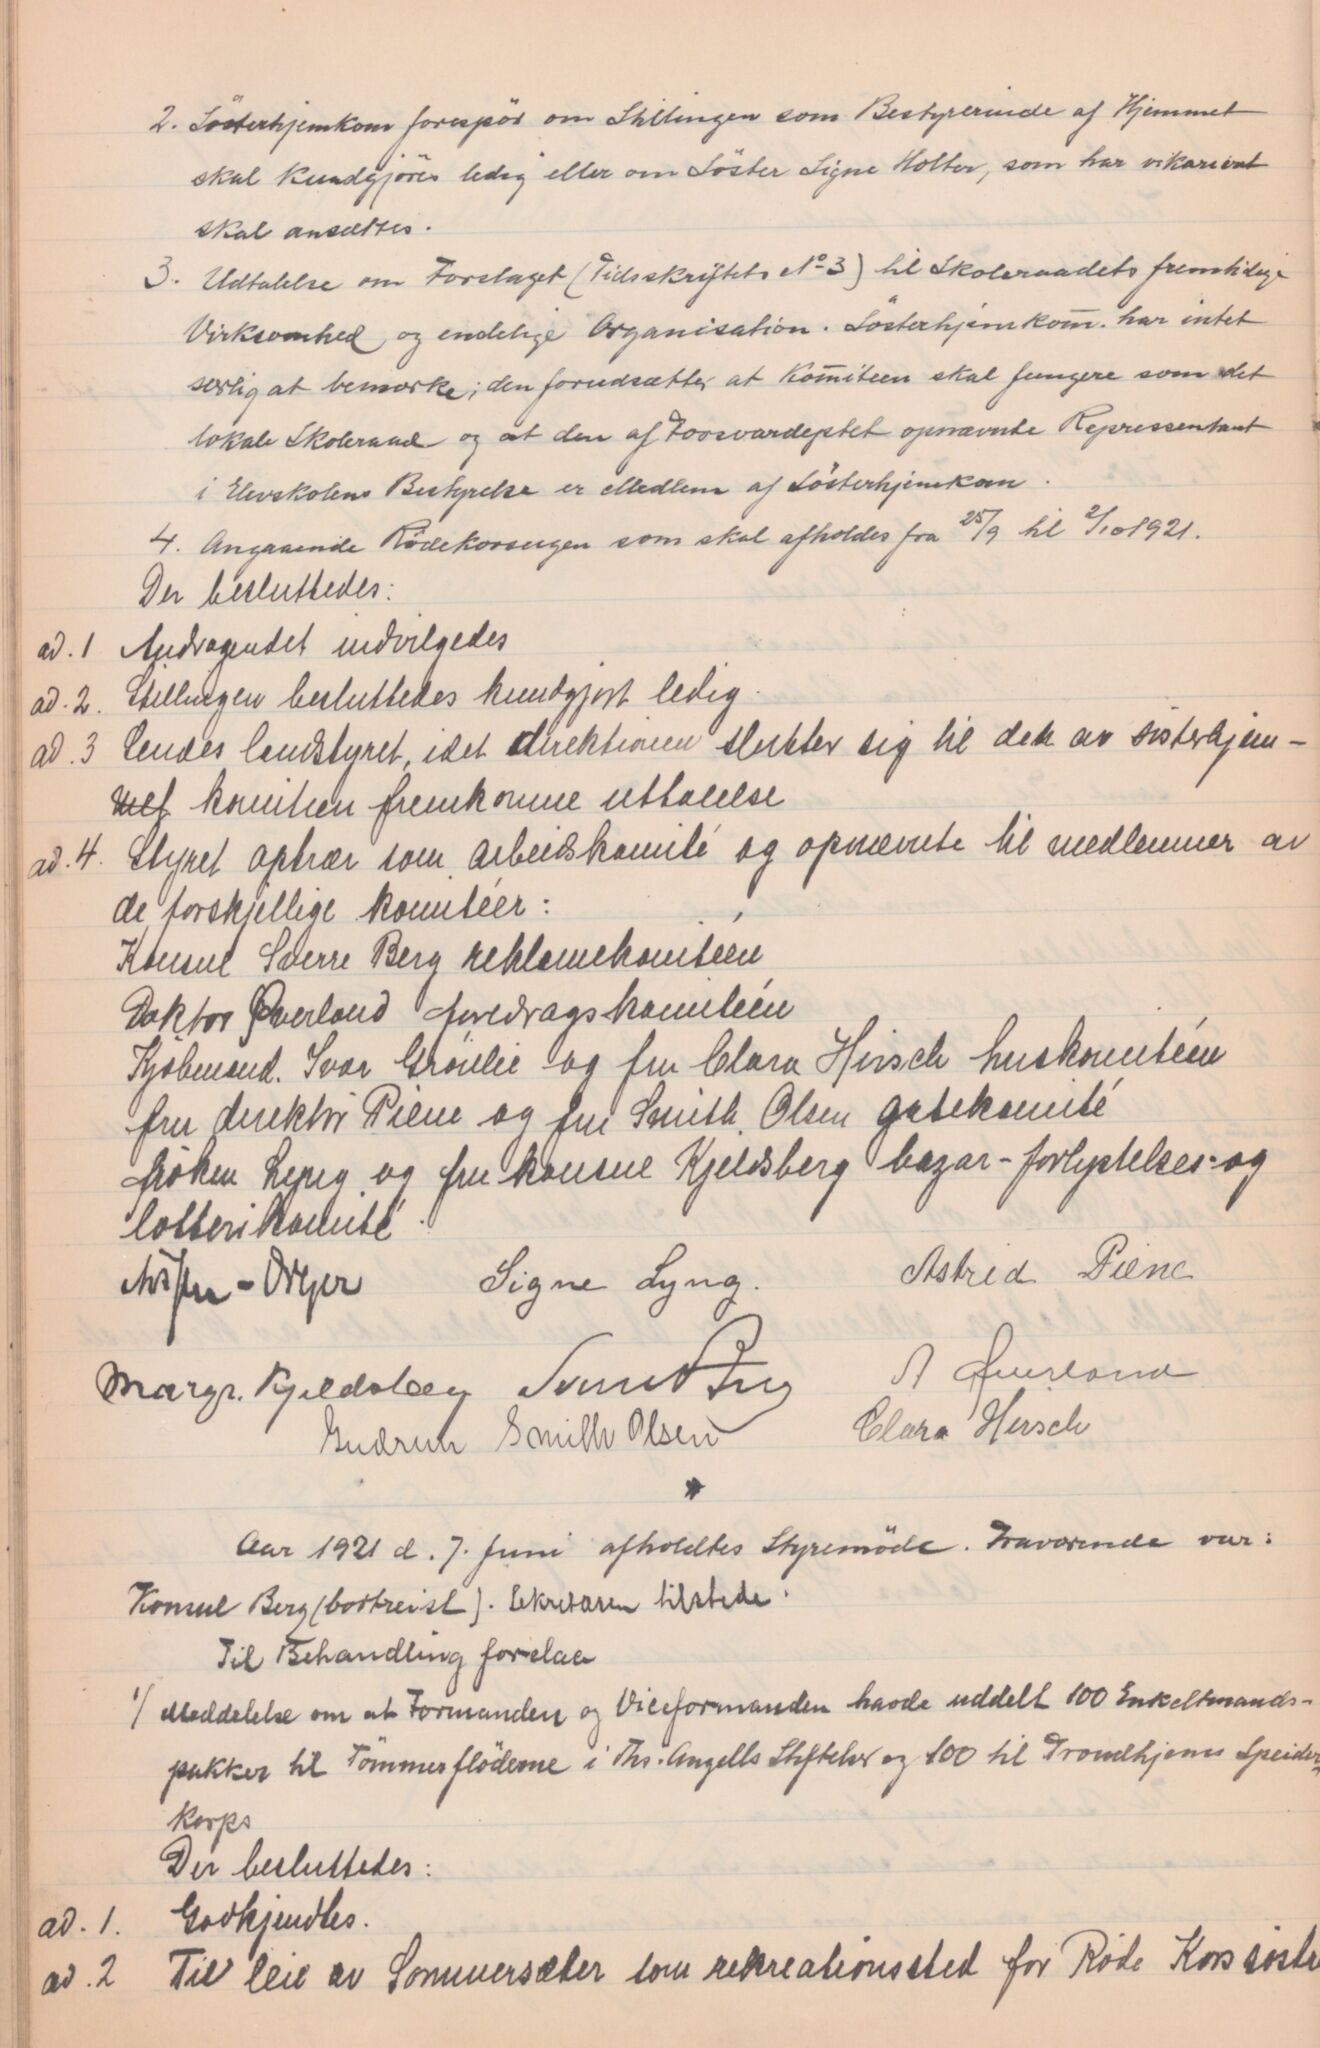 2. Sösterhjemkom forespör om Stillingen som Bestyrerinde af Hjemmet
skal kundgjöres ledig eller om Söster Signe Holter, som har vikariert
skal ansættes.
3. Udtalelse om Forslaget (Tidsskriftets No 3) til Skoleraadets fremtidige
Virksomhed og endelige Organisation. Sösterhjemkom̄. har intet
særlig at bemærke; den forudsætter at Kom̄iteen skal fungere som det
lokale Skoleraad og at den af Forsvardeptet opnævnte Repressentant
i Elevskolens Bestyrelse er Medlem af Sösterhjemkom.
4. Angaaende Rödekorsugen som skal afholdes fra 25/9 til 2/10 1921.
Der besluttedes:
ad. 1 Andragendet indvilgedes
ad. 2. Stillingen besluttedes kundgjort ledig.
ad. 3 Sendes landstyret, idet direktionen slutter sig til den av søsterhjem-
met komiteen fremkomne uttalelse
ad. 4. Styret optrær som arbeidskomité og opnævnte til medlemmer av
de forskjellige komitéer:
Konsul Sverre Berg reklamekomitéen
Doktor Øverland foredragskomitéen
Kjøbmand. Ivar Grønlie og fru Clara Hirsch huskomitéen
fru direktør Piene og fru Smith Olsen gatekomité
frøken Lyng og fru konsul Kjeldsberg bazar-forlystelses-og
lotterikomité.
Signe Lyng. Astrid Piene
Margr. Kjeldsberg Sverre Berg A Øverland
Gudrun Smith Olsen Clara Hirsch
Aar 1921 d. 7. Juni afholdtes Styremöde. Fraværende var:
Konsul Berg (bortreist). Sekretæren tilstede.
Til Behandling forelaa
1/ Meddelelse om at Formanden og Viceformanden havde uddelt 100 Enkeltmands-
pakker til Tömmerflöderne i Ths. Angells Stiftelser og 100 til Trondhjems Speider-
korps
Der besluttedes:
ad. 1. Godkjendtes.
ad. 2 Til leie av Sommersæter som rekreationssted for Røde Kors søstre